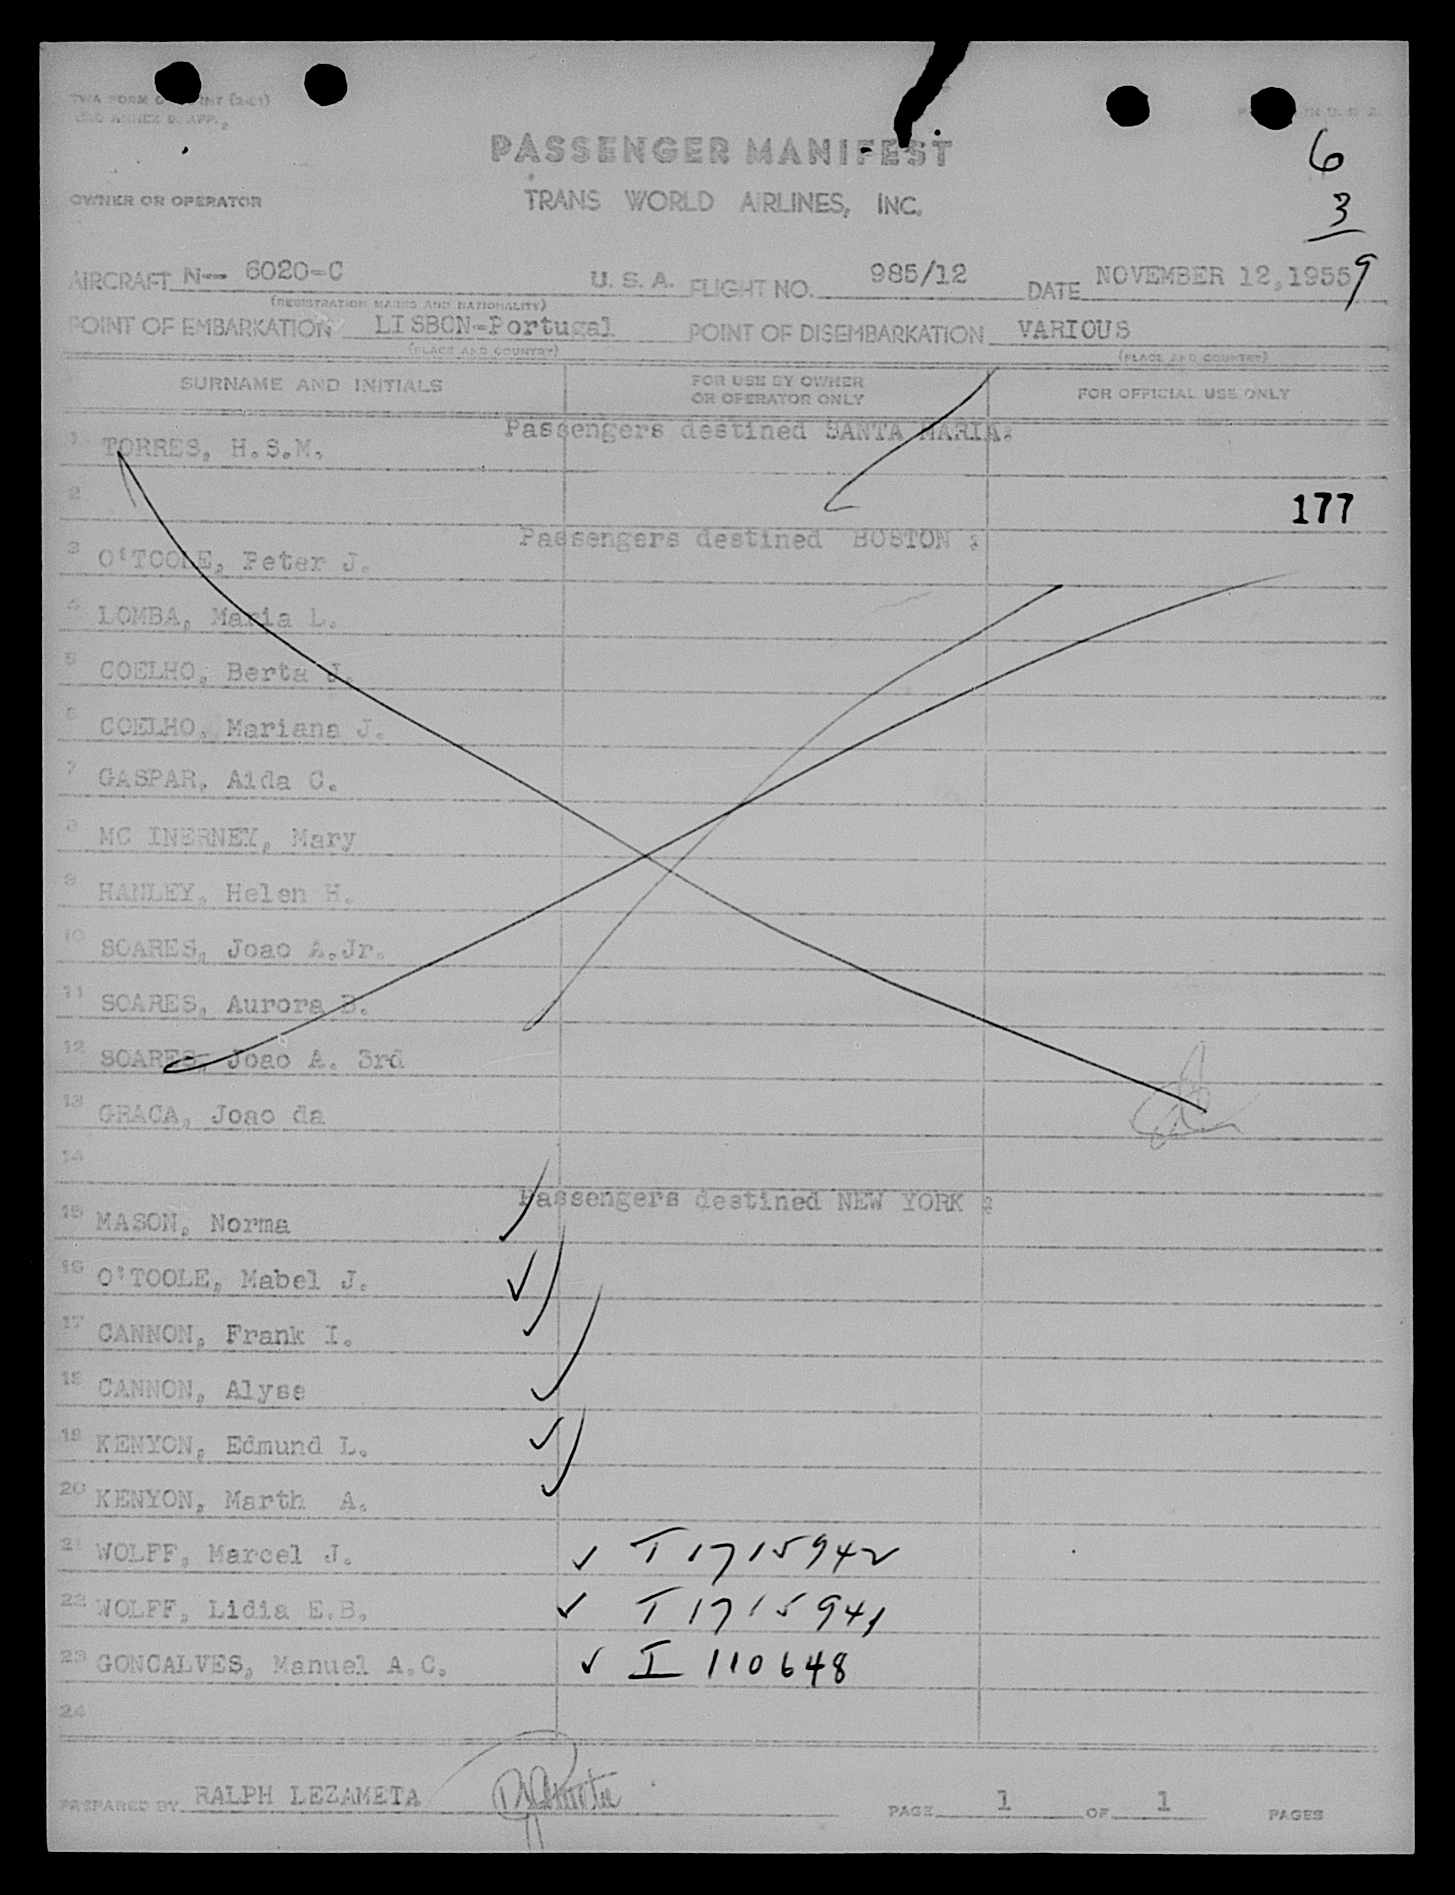 TWA FORM
ICAO ANNEX 9, APP. 2
PASSENGER MANIFEST
6
3
9
OWNER OR OPERATOR TRANS WORLD AIRLINES, INC.
AIRCRAFT N-- 6020-C U. S. A. FLIGHT NO. 985/12 DATE NOVEMBER 12,1955
(REGISTRATION MARKS AND NATIONALITY)
POINT OF EMBARKATION LISBON-Portugal POINT OF DISEMBARKATION VARIOUS
(PLACE AND COUNTRY) (PLACE AND COUNTRY)
SURNAME AND INITIALS FOR USE BY OWNER OR OPERATOR ONLY FOR OFFICIAL USE ONLY
Passengers destined SANTA MARIA:
1 TORRES, H.S.M.
2
177
Passengers destined BOSTON :
3 O'TOOLE, Peter J.
4 LOMBA, Maria L.
5 COELHO, Berta J.
6 COELHO, Mariana J.
7 GASPAR, Aida C.
8 MC INERNEY, Mary
9 HANLEY, Helen H.
10 SOARES, Joao A.Jr.
11 SOARES, Aurora B.
12 SOARES, Joao A. 3rd
13 GRACA, Joao da
14
Passengers destined NEW YORK :
15 MASON, Norma
16 O'TOOLE, Mabel J.
17 CANNON, Frank I.
18 CANNON, Alyse
19 KENYON, Edmund L.
20 KENYON, Marth A.
21 WOLFF, Marcel J. ✓ T 1715942
22 WOLFF, Lidia E.B. ✓ T 1715941
23 GONCALVES, Manuel A.C. ✓ I 110648
24
PREPARED BY RALPH LEZAMETA PAGE 1 OF 1 PAGES